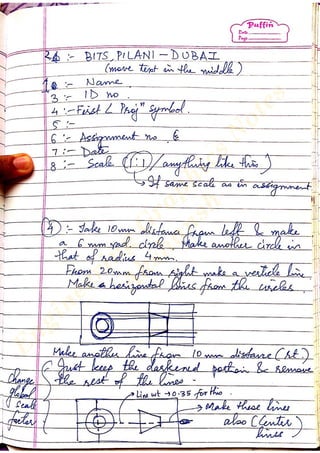 Puffin
Date
Page
2 :- BITS, PILANI - DUBAI
(move text in the middle)
1 :- Name
3 :- ID no.
4 :- First ∠ Projⁿ symbol.
5 :-
6 :- Assignment no. 6
7 :- Date
8 :- Scale (1:1) / anything like this)
↳ If same scale as in assignment
4) :- Take 10mm distance from left & make
a 6 mm rad. circle. Make another circle in
that of radius 4 mm.
From 20mm from right make a verticle line
Make 2 horizontal lines from the circles.
Make another line from 10 mm distance (rt.)
Just keep the darkened portion & remove
the rest of the lines.
Change
global
scale
factor
Line wt → 0.35 for this.
→ Make these lines
also (Center)
lines